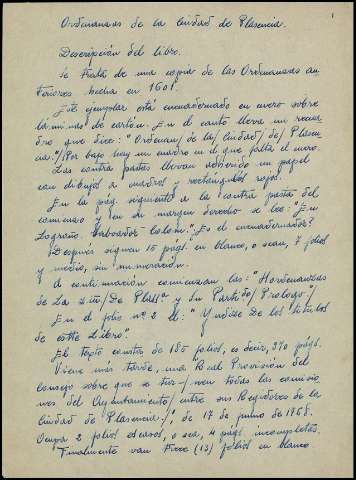 1
Ordenanzas de la Ciudad de Plasencia.
Descripción del libro.
Se trata de una copia de las Ordenanzas an
teriores hecha en 1601.
Este ejemplar está encuadernado en cuero sobre
láminas de cartón. En el canto lleva un recua
dro que dice: "Ordenan/de la/Ciudad/de/Plasen
cia."/Por bajo hay un cuadro en el que falta el cuero.
Las contra pastas llevan adherido un papel
con dibujos a cuadros y rectángulos rojos.
En la pág. siguiente a la contra pasta del
comienzo y en su margen derecho se lee: "En
Logroño. Es el encuadernador?
Después siguen 15 págs. en blanco, o sean, 7 folios
y medio, sin numeración.
A continuación comienzan las: "Hordenanzas
de La y Su Partido/Prologo"/
En el folio nº 2 el: "Yndize De los titulos
de este Libro"
El texto consta de 185 folios, es decir, 370 págs.
Viene más tarde, una "Real Provisión del
consejo sobre que se tur-/nen todas las comisio
nes del Ayuntamiento/entre sus Regidores de la
Ciudad de Plasencia/", de 17 de junio de 1768.
Ocupa 2 folios escasos, o sea, 4 págs. incompletas.
Finalmente van Trece (13) folios en blanco.